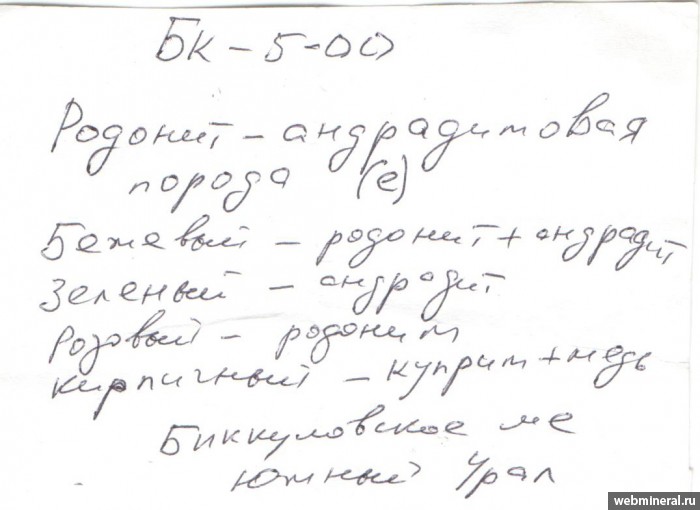 БК-5-00
Родонит-андрадитовая
порода (е)
Бежевый - родонит + андрадит
Зеленый - андрадит
Розовый - родонит
Кирпичный - куприт + медь
Биккуловское м-е
Южный Урал
webmineral.ru